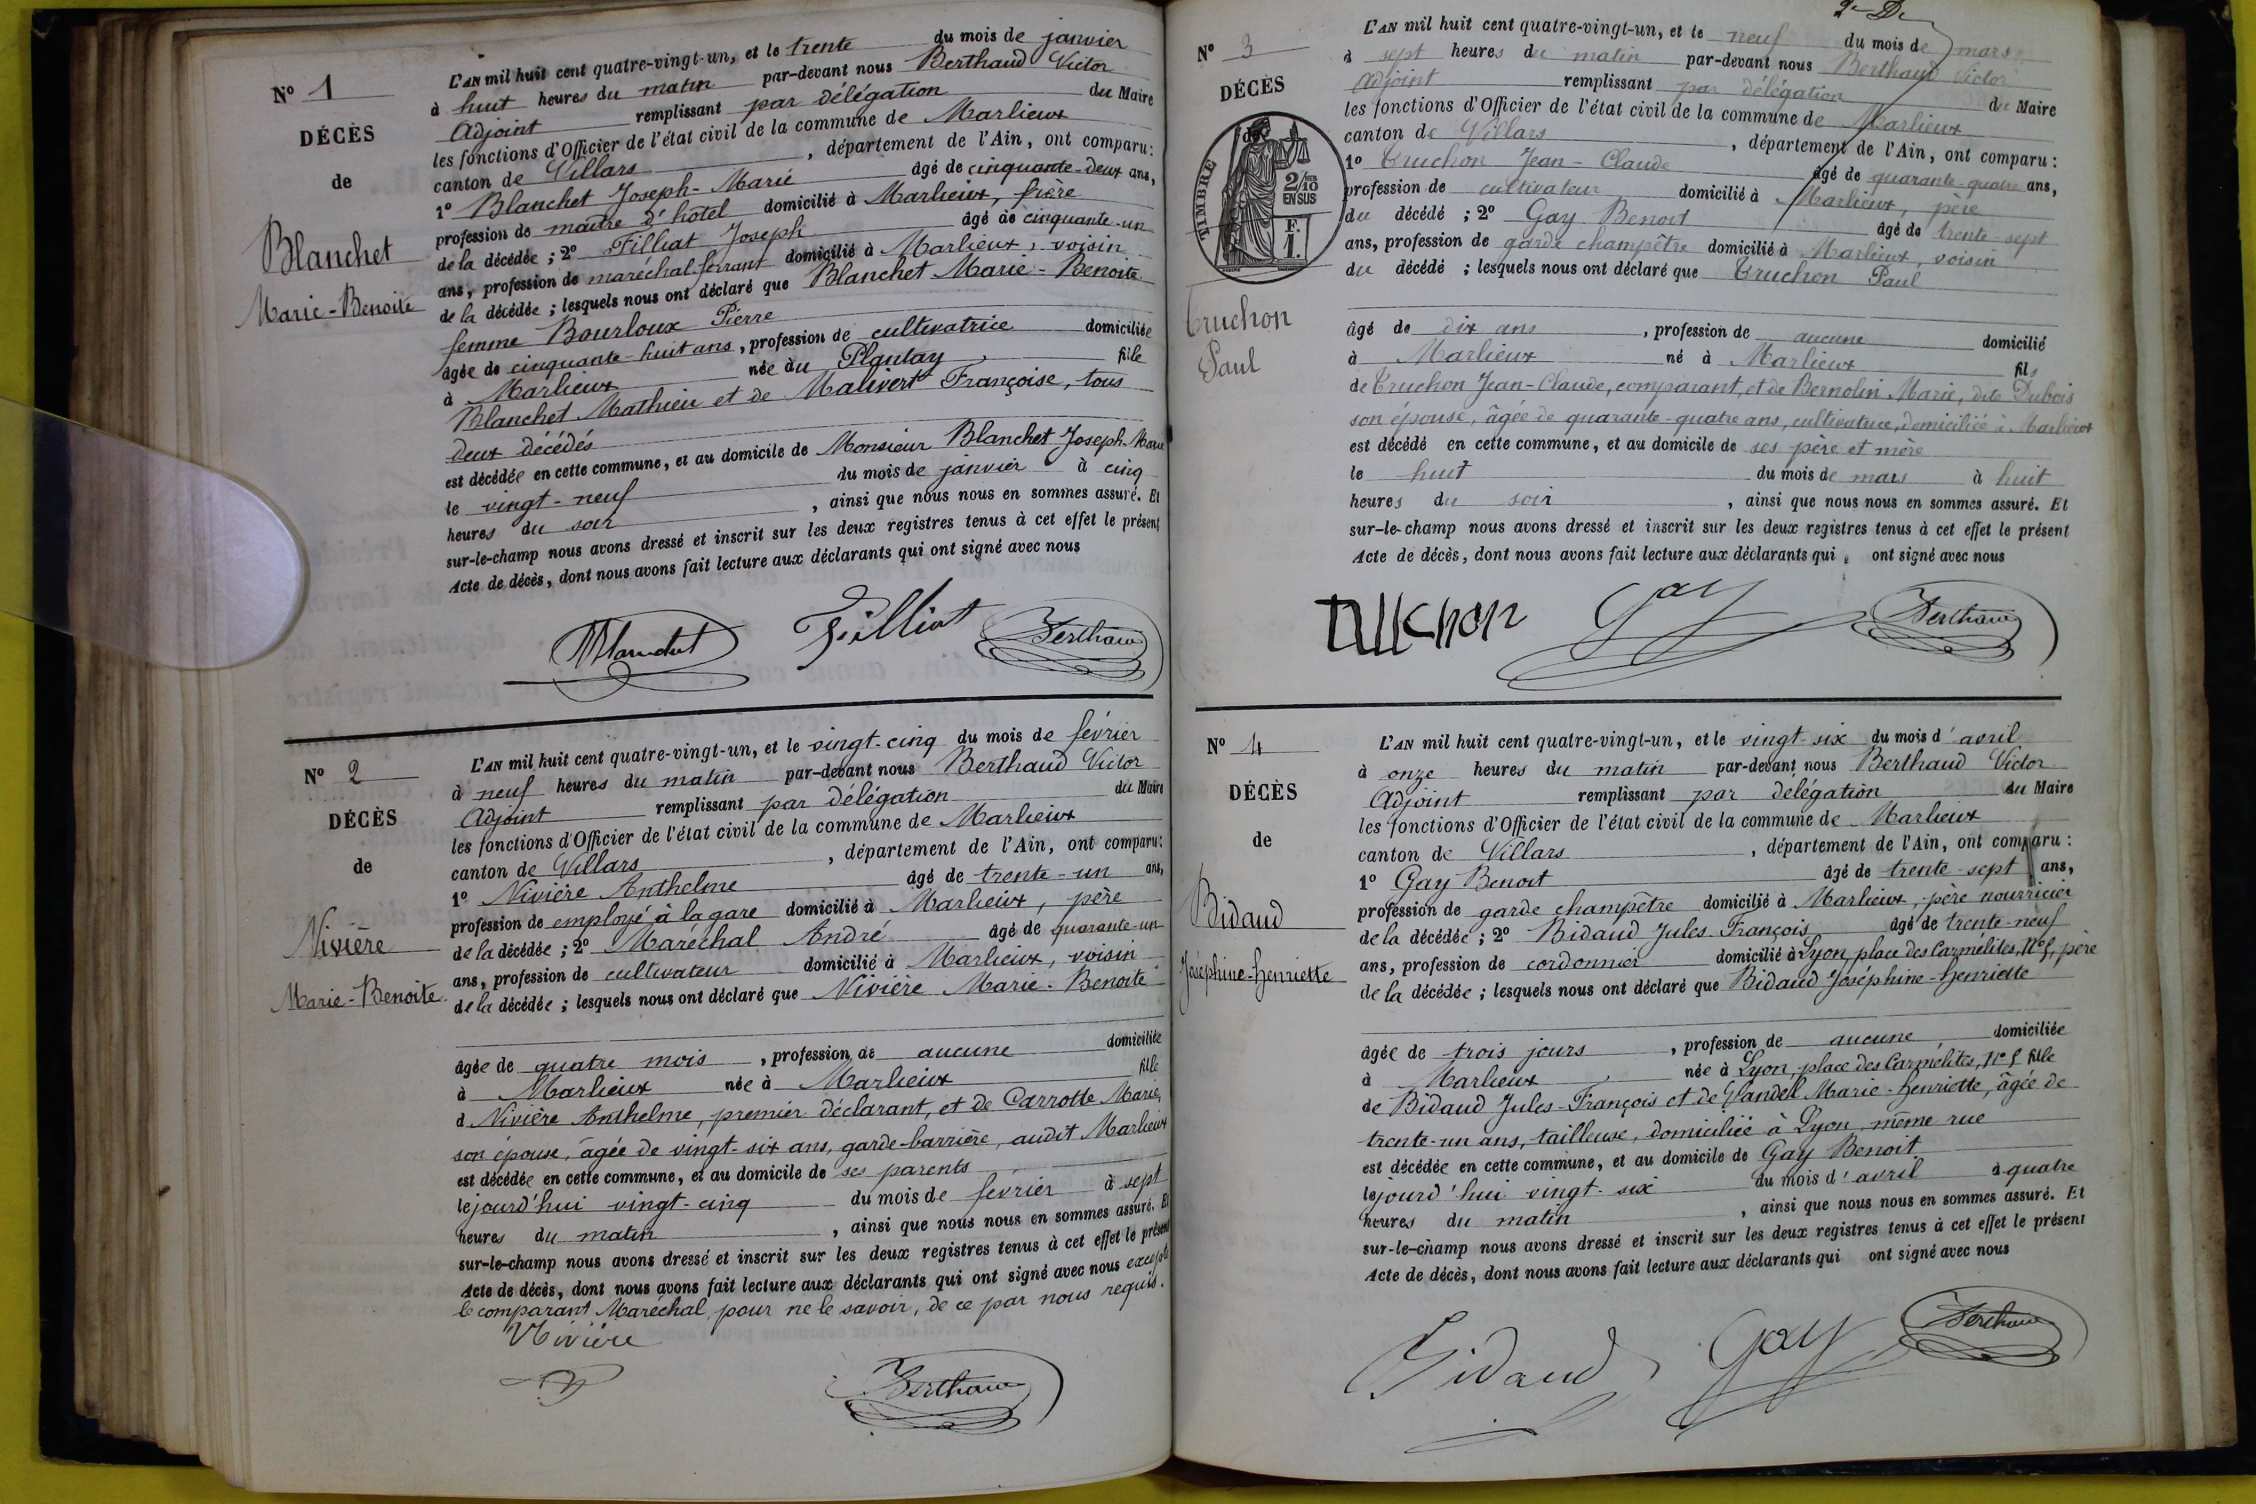 Nº 1
DÉCÈS
de
Blanchet
Marie-Benoite
L'AN mil huit cent quatre-vingt-un, et le trente du mois de janvier
à huit heures du matin par-devant nous Berthaud Victor
Adjoint remplissant par délégation du Maire
les fonctions d'Officier de l'état civil de la commune de Marlieux
canton de Villars , département de l'Ain, ont comparu:
1º Blanchet Joseph-Marie âgé de cinquante-deux ans,
profession de maître d'hôtel domicilié à Marlieux, frère
de la décédée ; 2º Filliat Joseph âgé de cinquante-un
ans, profession de maréchal-ferrant domicilié à Marlieux, voisin
de la décédée ; lesquels nous ont déclaré que Blanchet Marie-Benoite
femme Bourloux Pierre
âgée de cinquante-huit ans, profession de cultivatrice domiciliée
à Marlieux née au Plantay fille
Blanchet Mathieu et de Malivert Françoise, tous
deux décédés
est décédée en cette commune, et au domicile de Monsieur Blanchet Joseph-Marie
le vingt-neuf du mois de janvier à cinq
heures du soir , ainsi que nous nous en sommes assuré. Et
sur-le-champ nous avons dressé et inscrit sur les deux registres tenus à cet effet le présent
Acte de décès, dont nous avons fait lecture aux déclarants qui ont signé avec nous
Blanchet Filliat Berthaud
Nº 2
DÉCÈS
de
Nivière
Marie-Benoite
L'AN mil huit cent quatre-vingt-un, et le vingt-cinq du mois de février
à neuf heures du matin par-devant nous Berthaud Victor
Adjoint remplissant par délégation du Maire
les fonctions d'Officier de l'état civil de la commune de Marlieux
canton de Villars , département de l'Ain, ont comparu:
1º Nivière Anthelme âgé de trente-un ans,
profession de employé à la gare domicilié à Marlieux, père
de la décédée ; 2º Maréchal André âgé de quarante-un
ans, profession de cultivateur domicilié à Marlieux, voisin
de la décédée ; lesquels nous ont déclaré que Nivière Marie-Benoite
âgée de quatre mois , profession de aucune domiciliée
à Marlieux née à Marlieux fille
d Nivière Anthelme, premier déclarant, et de Carrotte Marie,
son épouse, âgée de vingt-six ans, garde-barrière, audit Marlieux
est décédée en cette commune, et au domicile de ses parents
le jourd'hui vingt-cinq du mois de février à sept
heures du matin , ainsi que nous nous en sommes assuré. Et
sur-le-champ nous avons dressé et inscrit sur les deux registres tenus à cet effet le présent
Acte de décès, dont nous avons fait lecture aux déclarants qui ont signé avec nous excepté
le comparant Maréchal pour ne le savoir, de ce par nous requis.
Nivière
Berthaud
Nº 3
DÉCÈS
de
TIMBRE
2/10
EN SUS
F.
1.
Truchon
Paul
L'AN mil huit cent quatre-vingt-un, et le neuf du mois de mars
à sept heures du matin par-devant nous Berthaud Victor
Adjoint remplissant par délégation du Maire
les fonctions d'Officier de l'état civil de la commune de Marlieux
canton de Villars , département de l'Ain, ont comparu :
1º Truchon Jean-Claude âgé de quarante-quatre ans,
profession de cultivateur domicilié à Marlieux, père
du décédé ; 2º Gay Benoit âgé de trente-sept
ans, profession de garde champêtre domicilié à Marlieux, voisin
du décédé ; lesquels nous ont déclaré que Truchon Paul
âgé de dix ans , profession de aucune domicilié
à Marlieux né à Marlieux fils
de Truchon Jean-Claude, comparant, et de Bernolin Marie, dite Dubois
son épouse, âgée de quarante-quatre ans, cultivatrice, domiciliée à Marlieux
est décédé en cette commune, et au domicile de ses père et mère
le huit du mois de mars à huit
heures du soir , ainsi que nous nous en sommes assuré. Et
sur-le-champ nous avons dressé et inscrit sur les deux registres tenus à cet effet le présent
Acte de décès, dont nous avons fait lecture aux déclarants qui ont signé avec nous
Truchon Gay Berthaud
Nº 4
DÉCÈS
de
Bidaud
Joséphine-henriette
L'AN mil huit cent quatre-vingt-un, et le vingt-six du mois d'avril
à onze heures du matin par-devant nous Berthaud Victor
Adjoint remplissant par délégation du Maire
les fonctions d'Officier de l'état civil de la commune de Marlieux
canton de Villars , département de l'Ain, ont comparu :
1º Gay Benoit âgé de trente-sept ans,
profession de garde champêtre domicilié à Marlieux, père nourricier
de la décédée ; 2º Bidaud Jules-François âgé de trente-neuf
ans, profession de cordonnier domicilié à Lyon, place des Carmélites, Nº 5, père
de la décédée ; lesquels nous ont déclaré que Bidaud Joséphine-henriette
âgée de trois jours , profession de aucune domiciliée
à Marlieux née à Lyon, place des Carmélites, Nº 5 fille
de Bidaud Jules-François et de Vandel Marie-henriette, âgée de
trente-un ans, tailleuse, domiciliée à Lyon, même rue
est décédée en cette commune, et au domicile de Gay Benoit
le jourd'hui vingt-six du mois d'avril à quatre
heures du matin , ainsi que nous nous en sommes assuré. Et
sur-le-champ nous avons dressé et inscrit sur les deux registres tenus à cet effet le présent
Acte de décès, dont nous avons fait lecture aux déclarants qui ont signé avec nous
Bidaud Gay Berthaud